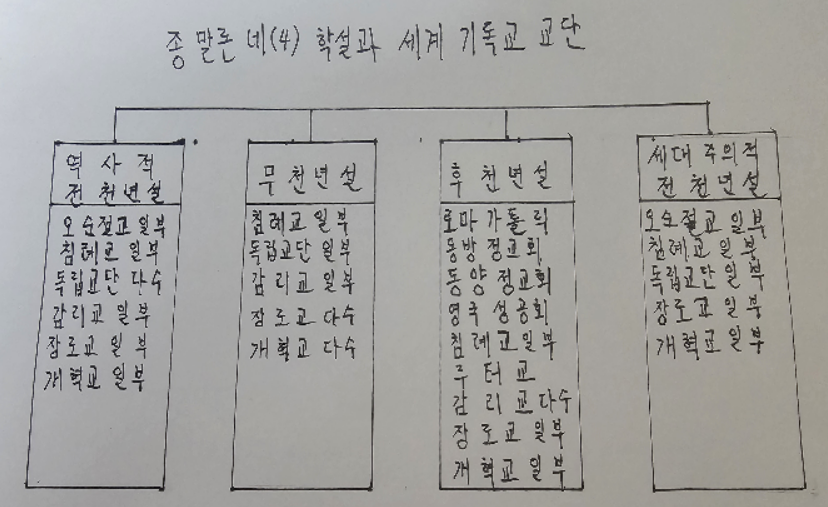 종말론 네(4) 학설과 세계 기독교 교단
역사적
전천년설
오순절교 일부
침례교 일부
독립교단 다수
감리교 일부
장로교 일부
개혁교 일부
무천년설
침례교 일부
독립교단 일부
감리교 일부
장로교 다수
개혁교 다수
후천년설
로마 가톨릭
동방 정교회
동양 정교회
영국 성공회
침례교 일부
루터교
감리교 다수
장로교 일부
개혁교 일부
세대주의적
전천년설
오순절교 일부
침례교 일부
독립교단 일부
장로교 일부
개혁교 일부